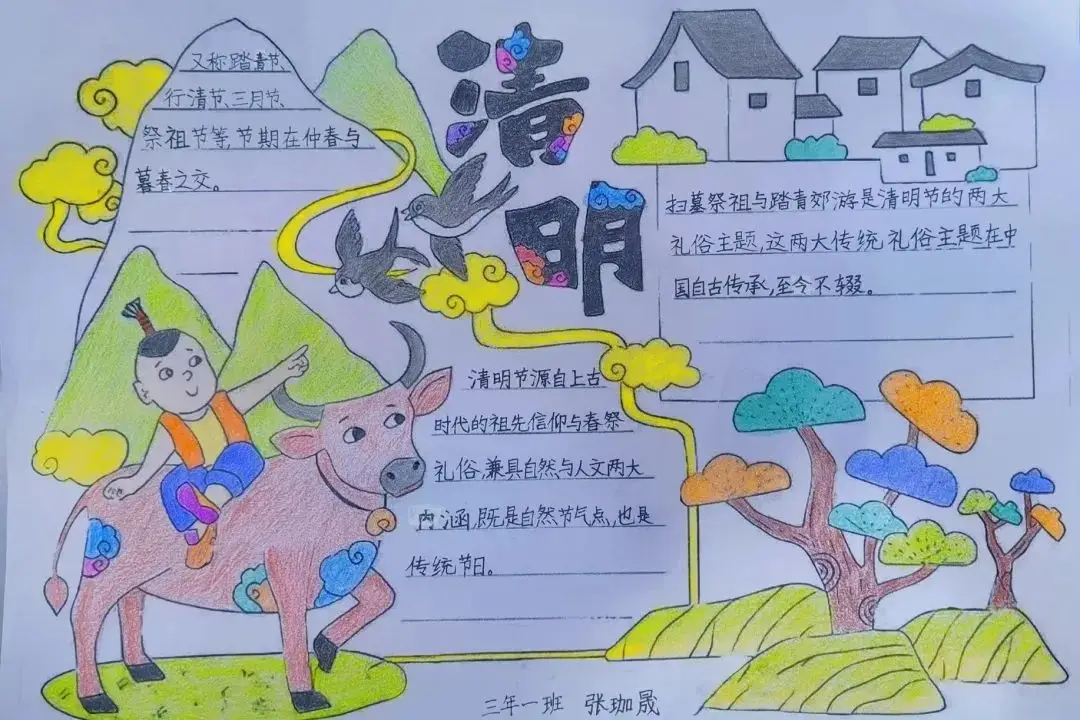 又称踏青节、
行清节、三月节、
祭祖节等,节期在仲春与
暮春之交。
清明
扫墓祭祖与踏青郊游是清明节的两大
礼俗主题,这两大传统礼俗主题在中
国自古传承,至今不辍。
清明节源自上古
时代的祖先信仰与春祭
礼俗,兼具自然与人文两大
内涵,既是自然节气点,也是
传统节日。
三年一班 张珈晟